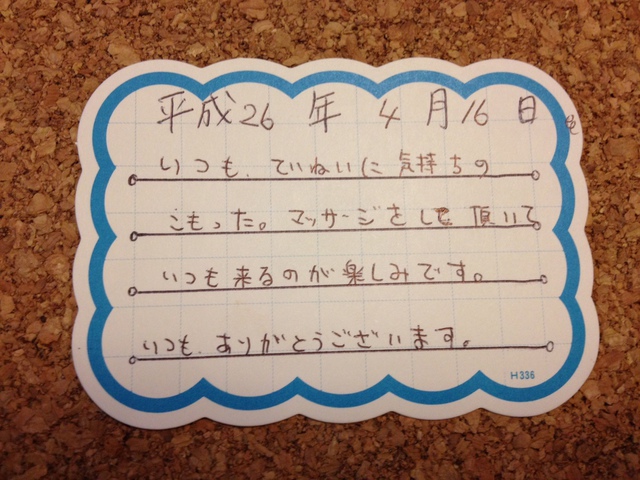 平成26年 4月16日
いつも、ていねいに気持ちの
こもった。マッサージをして頂いて
いつも来るのが楽しみです。
いつも、ありがとうございます。
H336